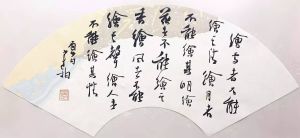 繪雪者不能
繪其清繪月者
不能繪其明繪
花者不能繪其
香繪風者不能
繪其聲繪人者
不能繪其情